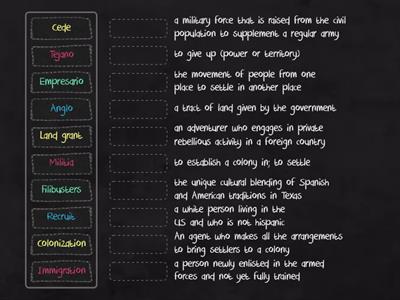 Cede
Tejano
Empresario
Anglo
Land grant
Militia
Filibusters
Recruit
Colonization
Immigration
a military force that is raised from the civil
population to supplement a regular army
to give up (power or territory)
the movement of people from one
place to settle in another place
a tract of land given by the government
an adventurer who engages in private
rebellious activity in a foreign country
to establish a colony in; to settle
the unique cultural blending of Spanish
and American traditions in Texas
a white person living in the
U.S and who is not hispanic
An agent who makes all the arrangements
to bring settlers to a colony
a person newly enlisted in the armed
forces and not yet fully trained